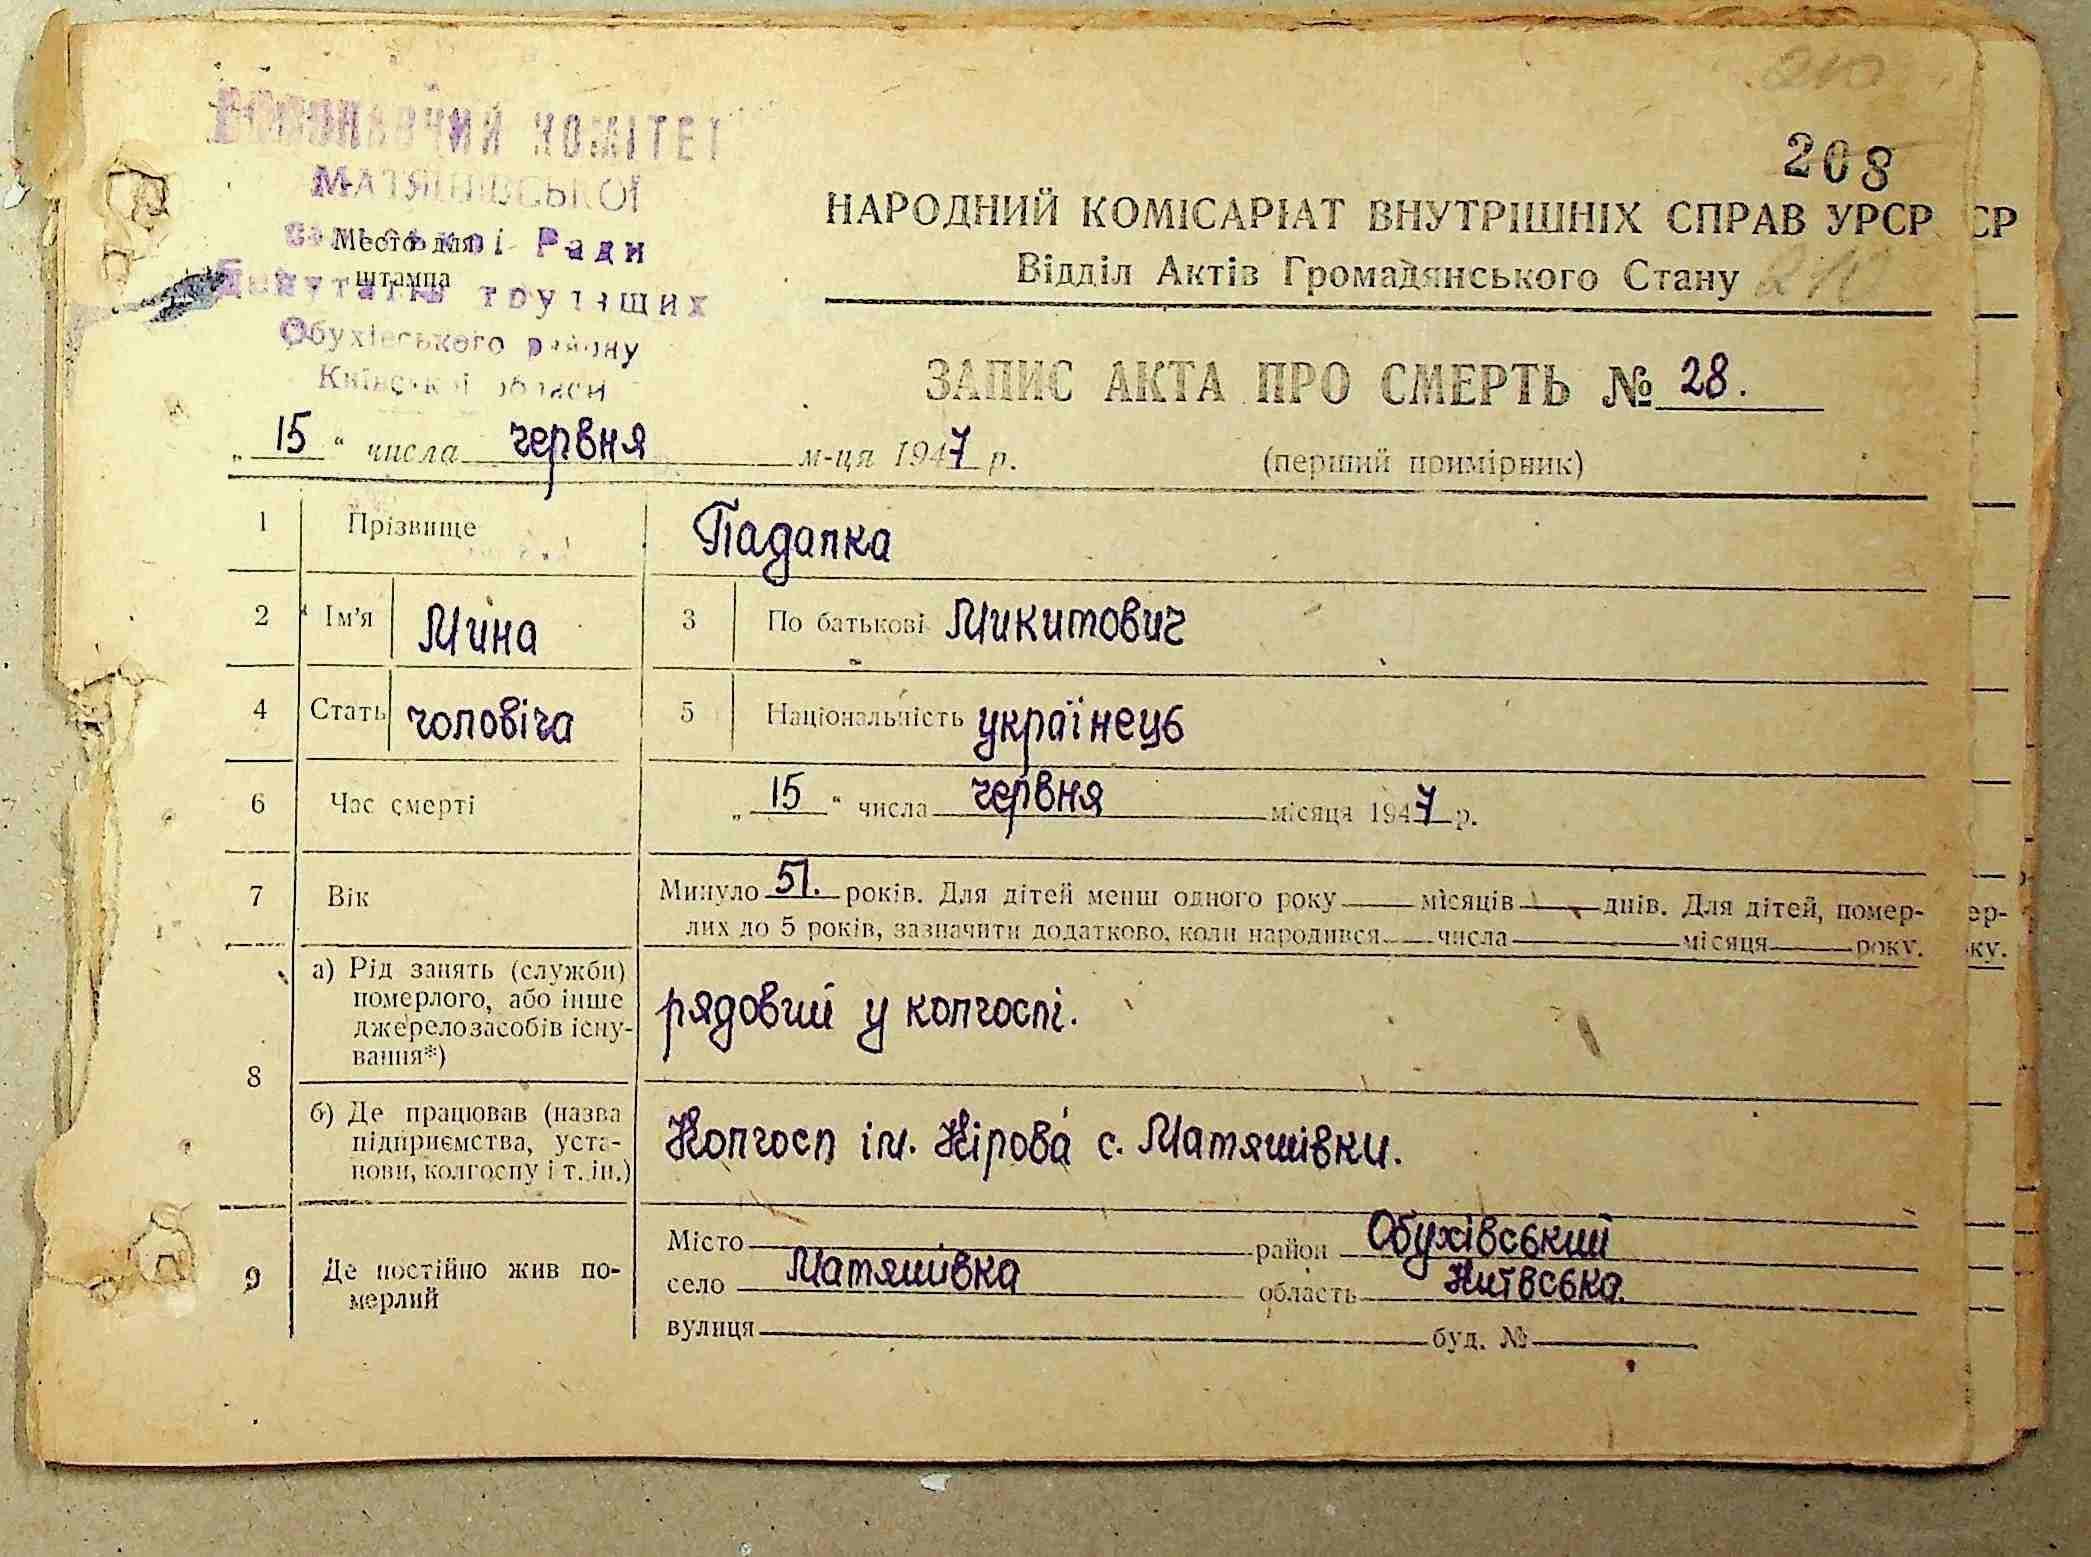 210
208
ВИКОНАВЧИЙ КОМІТЕТ
МАТЯШІВСЬКОЇ
Сільської Ради
Депутатів трудящих
Обухівського району
Київської області
Место для
штампа
НАРОДНИЙ КОМІСАРІАТ ВНУТРІШНІХ СПРАВ УРСР СР
Відділ Актів Громадянського Стану 210
ЗАПИС АКТА ПРО СМЕРТЬ № 28.
„ 15 “ числа червня м-ця 1947 р. (перший примірник)
1 Прізвище Падалка
2 Ім'я Мина 3 По батькові Микитович
4 Стать чоловіча 5 Національність українець
6 Час смерті „ 15 “ числа червня місяця 1947 р.
7 Вік Минуло 51. років. Для дітей менш одного року місяців днів. Для дітей, помер- ер-
лих до 5 років, зазначити додатково, коли народився числа місяця року. ку.
8
а) Рід занять (служби)
померлого, або інше
джерело засобів існу-
вання*)
рядовий у колгоспі.
б) Де працював (назва
підприємства, уста-
нови, колгоспу і т. ін.)
Колгосп ім. Кірова с. Матяшівки.
9 Де постійно жив по-
мерлий
Місто район Обухівський
село Матяшівка область Київська.
вулиця буд. №